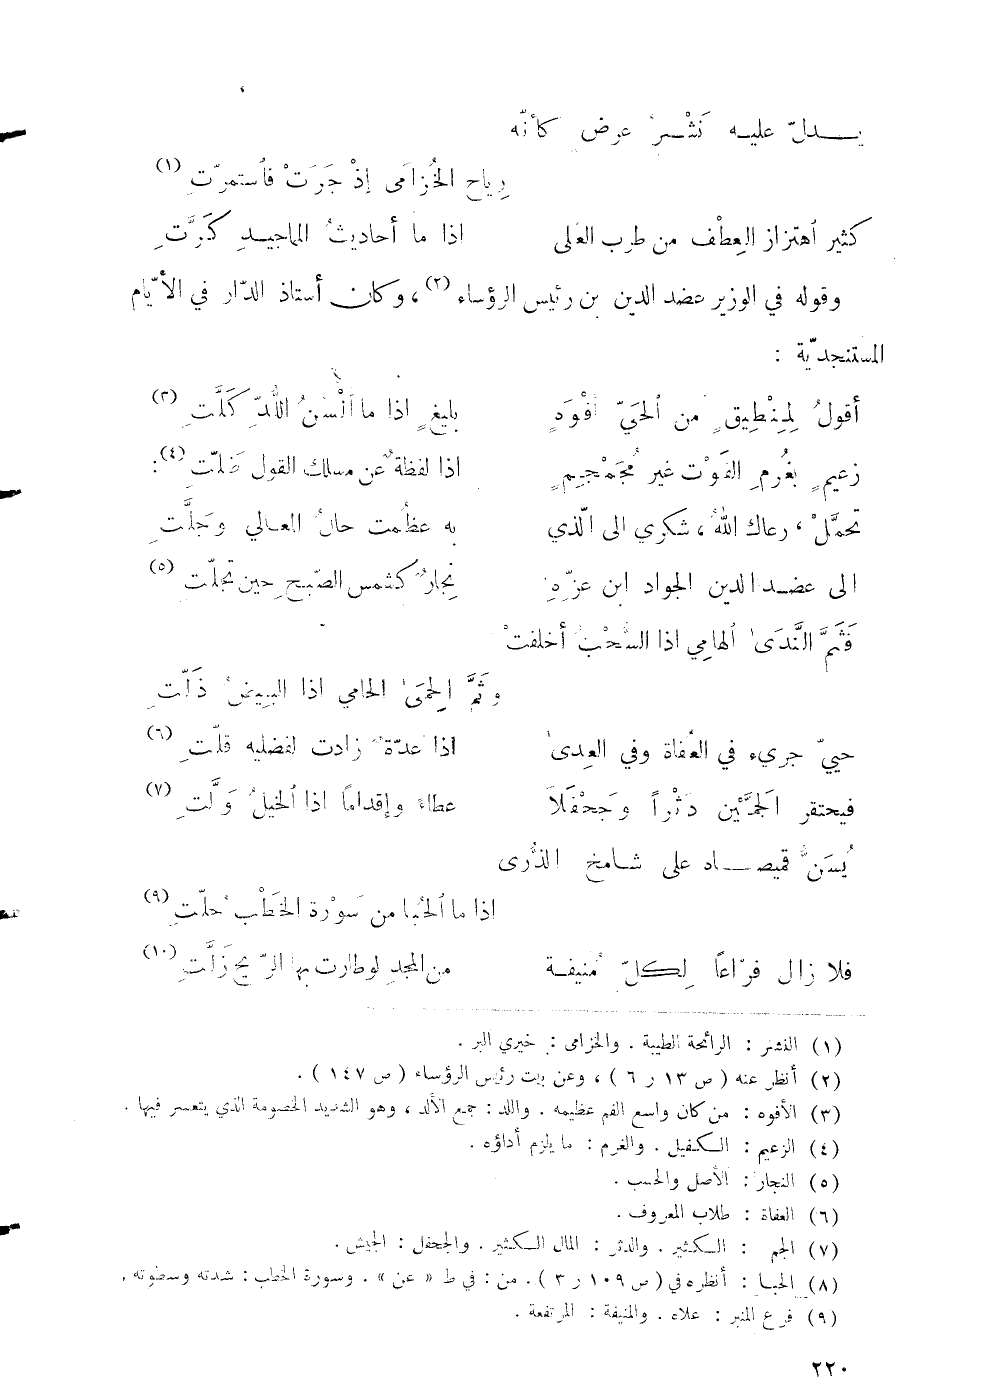 يدلّ عليه نَشْرُ عرضٍ كأنّه
رياح الخُزامى إذْ جَرَتْ فاستمرّتِ (١)
كثير اهتزاز العِطْف من طرب العُلى اذا ما أحاديثُ المماجيدِ كَرَّتِ
وقوله في الوزير عضد الدين بن رئيس الرؤساء (٢) ، وكان أستاذ الدّار في الأيّام
المستنجديّة :
أقولُ لِمِنْطِيقٍ من الحيّ أفْوَهٍ بليغٍ اذا ما ألْسُنُ اللُّدِّ كَلَّتِ (٣)
زعيمٍ بغُرمِ القَوْت غير مُجَمْجِمٍ اذا لفظةٌ عن مسلك القول ضَلّتِ (٤) :
تحمَّلْ ، رعاك اللهُ ، شكري الى الّذي به عظُمت حالُ المعالي وجَلَّتِ
الى عضد الدين الجواد ابن عزّهِ نِجارٌ كشمس الصّبح حين تجلّتِ (٥)
فَثَمَّ النَّدَى الهامِي اذا السُّحْبُ أخلفتْ
وثَمَّ الحِمَى الحامي اذا البِيضُ ذَلّتِ
حييّ جريء في العُفاة وفي العِدى اذا عدّةٌ زادت لفضليه قلّتِ (٦)
فيحتقر الجَمَّيْن دَثْراً وجَحْفَلاً عطاءً وإقدامًا اذا الخيلُ وَلَّتِ (٧)
يُسَنُّ قميصاه على شامخ الذُّرى
اذا ما الحُبا من سَوْرة الخَطْب حُلّتِ (٩)
فلا زال فرّاعاً لِكلّ مُنيفة من المجدِ لو طارت بها الرّيح زَلَّتِ (١٠)
(١) النشر : الرائحة الطيبة . والخزامى : خيري البر .
(٢) أنظر عنه ( ص ١٣ ر ٦ ) ، وعن بيت رئيس الرؤساء ( ص ١٤٧ ) .
(٣) الأفوه : من كان واسع الفم عظيمه . واللد : جمع الألد ، وهو الشديد الخصومة الذي يتعسر فيها .
(٤) الزعيم : الكفيل . والغرم : ما يلزم أداؤه .
(٥) النجار : الأصل والحسب .
(٦) العفاة : طلاب المعروف .
(٧) الجم : الكثير . والدثر : المال الكثير . والجحفل : الجيش .
(٨) الحبا : أنظره في ( ص ١٠٩ ر ٣ ) . من : في ط « عن » . وسورة الخطب : شدته وسطوته .
(٩) فرع المنبر : علاه . والمنيفة : المرتفعة .
٢٢٠